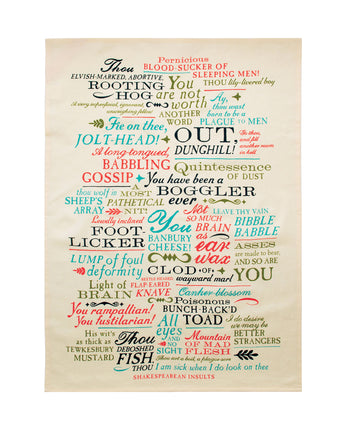 Pernicious
Thou BLOOD-SUCKER OF
SLEEPING MEN!
ELVISH-MARKED, ABORTIVE,
THOU lily-livered boy
ROOTING HOG
You are not worth
ANOTHER WORD
A very superficial, ignorant, unweighing fellow
Ay, thou wast born to be a
PLAGUE TO MEN
Fie on thee,
JOLT-HEAD!
OUT, DUNGHILL!
Go thou, and fill another room in hell.
A long-tongued,
BABBLING GOSSIP
Quintessence OF DUST
You have been a
BOGGLER ever
thou wolf in SHEEP'S ARRAY
A MOST PATHETICAL NIT!
Lewdly inclined
FOOT-LICKER
You BANBURY CHEESE!
Not SO MUCH BRAIN AS ear wax
LEAVE THY VAIN
BIBBLE BABBLE
LUMP of foul deformity
Asses are made to bear, AND SO ARE YOU
CLOD OF wayward marl
BEETLE-HEADED
FLAP-EARED KNAVE
Light of BRAIN
Canker-blossom
Poisonous BUNCH-BACK'D TOAD
You rampallian!
You fustilarian!
ALL eyes AND NO SIGHT
I do desire we may be BETTER STRANGERS
His wit's as thick as TEWKESBURY MUSTARD
Thou DEBOSHED FISH,
Mountain OF MAD FLESH
Thou art a boil, a plague sore
I am SICK when I do look on thee
SHAKESPEAREAN INSULTS